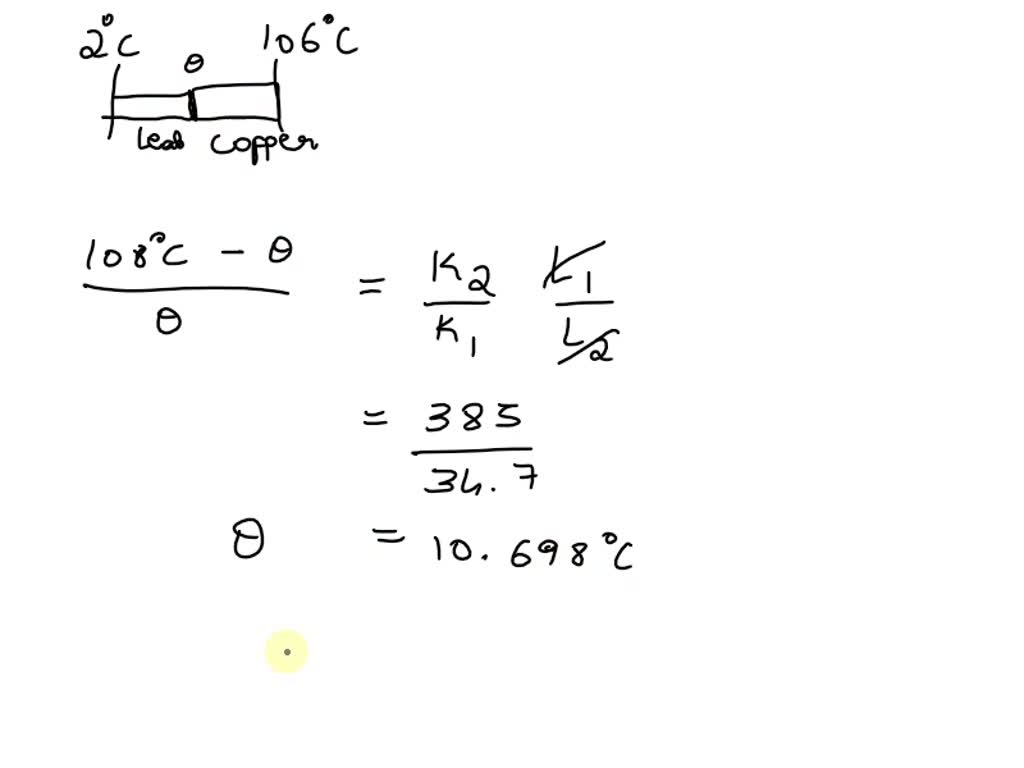 2°C 106°C
θ
Lead Copper
108°C - θ
θ
= K2 L1
K1 L2
= 385
34.7
θ = 10.698°C